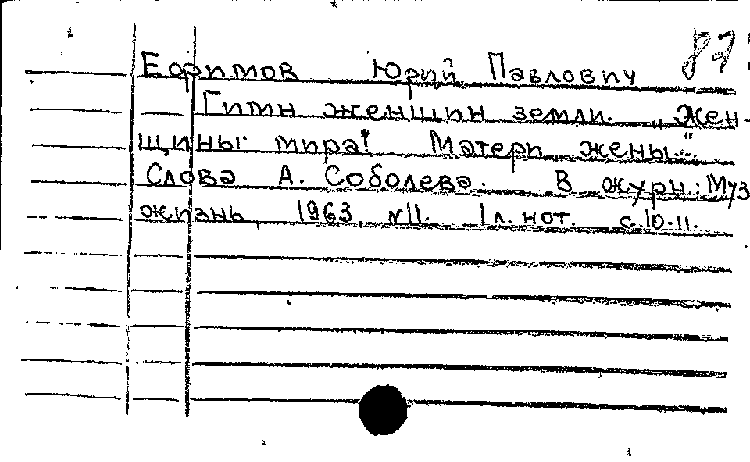 Ефимов Юрий Павлович
Гимн женщин земли. „Жен-
щины мира! Матери, жены.“
Слова А. Соболева. В журн.: Муз
жизнь, 1963, №11. 1 л. нот. с. 10-11.